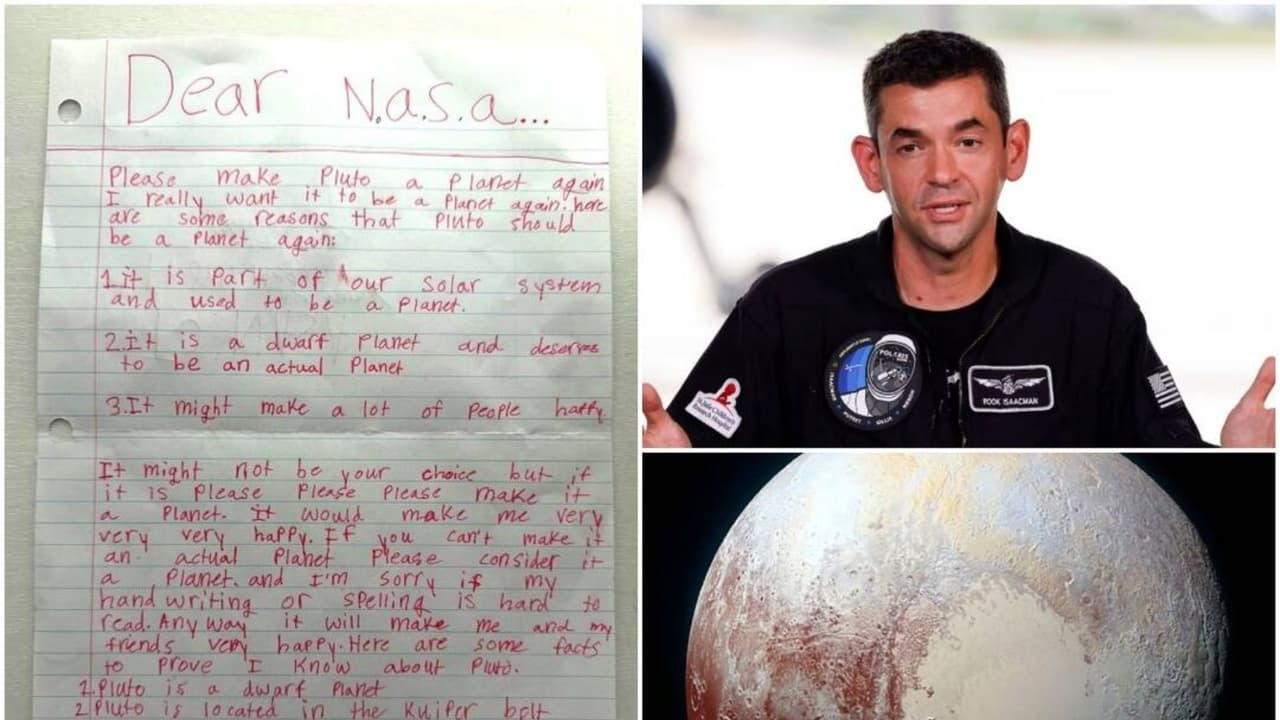 Dear N.a.s.a...
Please make Pluto a Planet again
I really want it to be a Planet again. here
are some reasons that Pluto should
be a Planet again:
1.it is part of our solar system
and used to be a Planet.
2.It is a dwarf Planet and deserves
to be an actual Planet
3.It might make a lot of People happy
It might not be your choice but if
it is Please Please Please make it
a Planet. It would make me very
very very happy. If you can't make it
an actual Planet Please consider it
a Planet. and I'm sorry if my
hand writing or spelling is hard to
read. Any way it will make me and my
friends very happy. Here are some facts
to prove I know about Pluto.
1.Pluto is a dwarf Planet
2 Pluto is located in the Kuiper belt
POLARIS
ROOK ISAACMAN
St. Jude Children's
Research Hospital